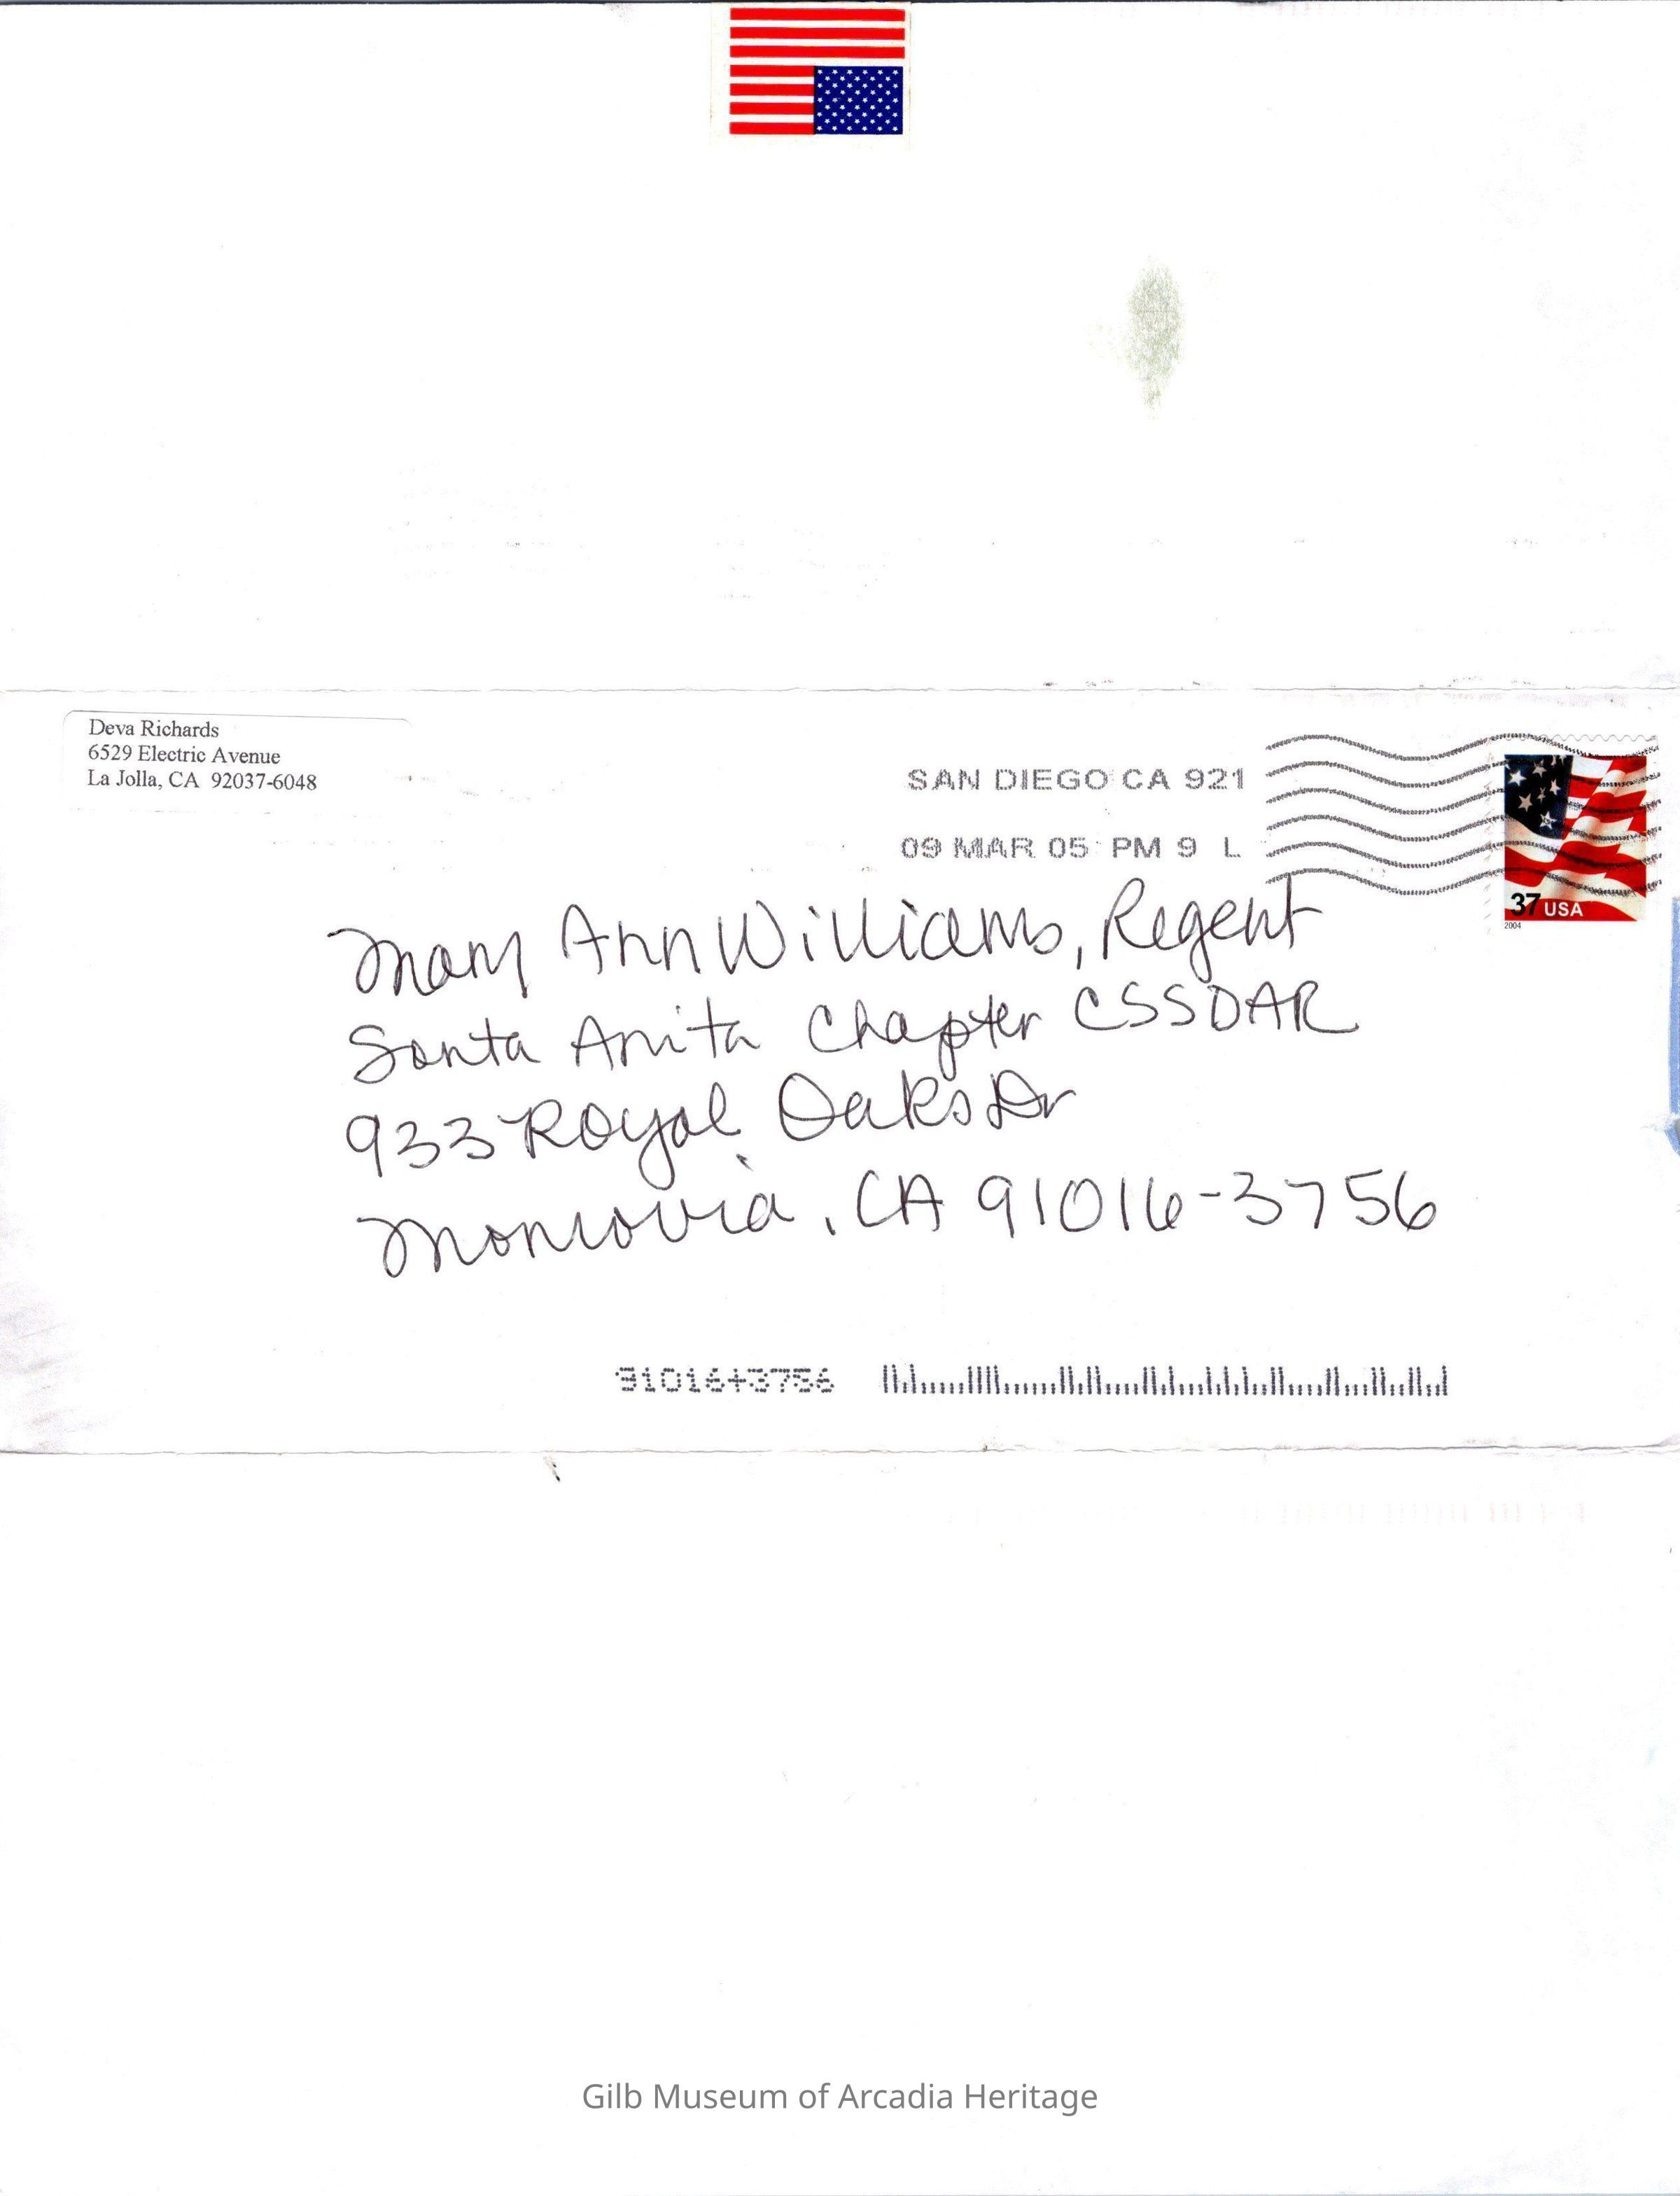 Deva Richards
6529 Electric Avenue
La Jolla, CA 92037-6048
SAN DIEGO CA 921
09 MAR 05 PM 9 L
37 USA
2004
Mary Ann Williams, Regent
Santa Anita Chapter CSSDAR
933 Royal Oaks Dr
Monrovia, CA 91016-3756
91016+3756
Gilb Museum of Arcadia Heritage